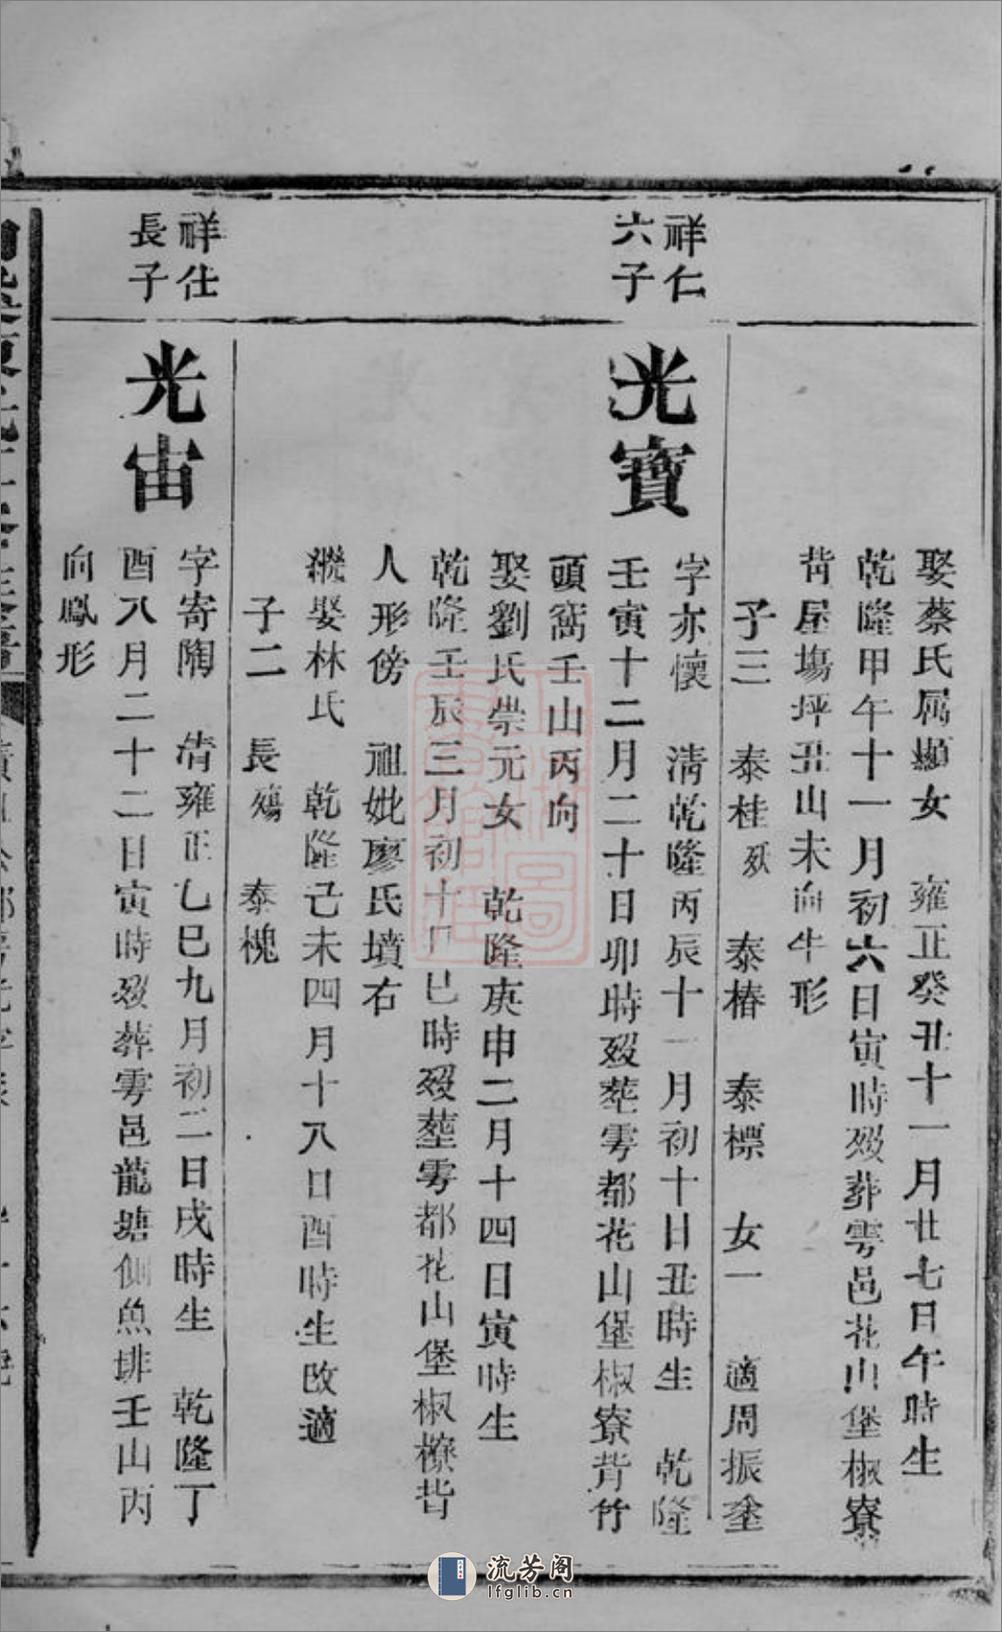 娶蔡氏属顯女　雍正癸丑十一月廿七日午時生
乾隆甲午十一月初六日寅時歿葬雩邑花山堡椒寮
背屋塲坪丑山未向牛形
子三　泰桂 歿　泰椿　泰標　女一　適周振奎
祥仁
六子
光寶
字亦懷　清乾隆丙辰十一月初十日丑時生　乾隆
壬寅十二月二十日卯時歿塟雩都花山堡椒寮背竹
頭窩壬山丙向
娶劉氏崇元女　乾隆庚申二月十四日寅時生
乾隆壬辰三月初十日巳時歿塟雩都花山堡椒橑背
人形傍　祖妣廖氏墳右
繼娶林氏　乾隆己未四月十八日酉時生改適
子二　長殤　泰槐
祥仕
長子
光宙
字寄陶　清雍正乙巳九月初二日戌時生　乾隆丁
酉八月二十二日寅時歿葬雩邑龍塘側魚排壬山丙
向鳳形
流芳阁
lfglib.cn